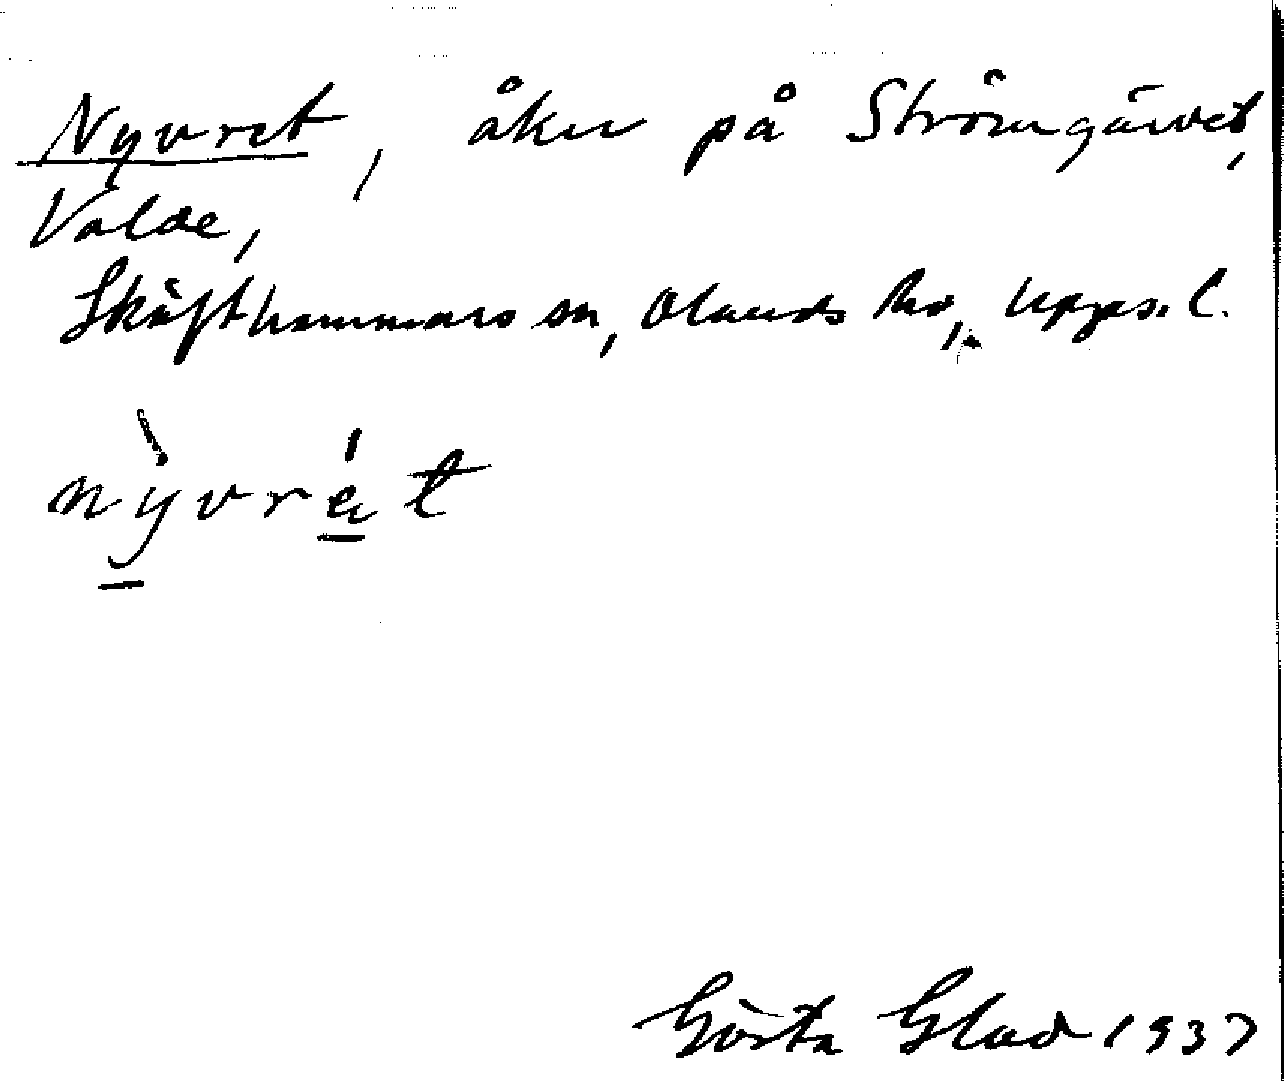 Nyvret, åker på Strömgärdet,
Valde,
Skäfthammars sn, Olands hd, Upps. l.
nỳvrét
Gösta Glad 1937